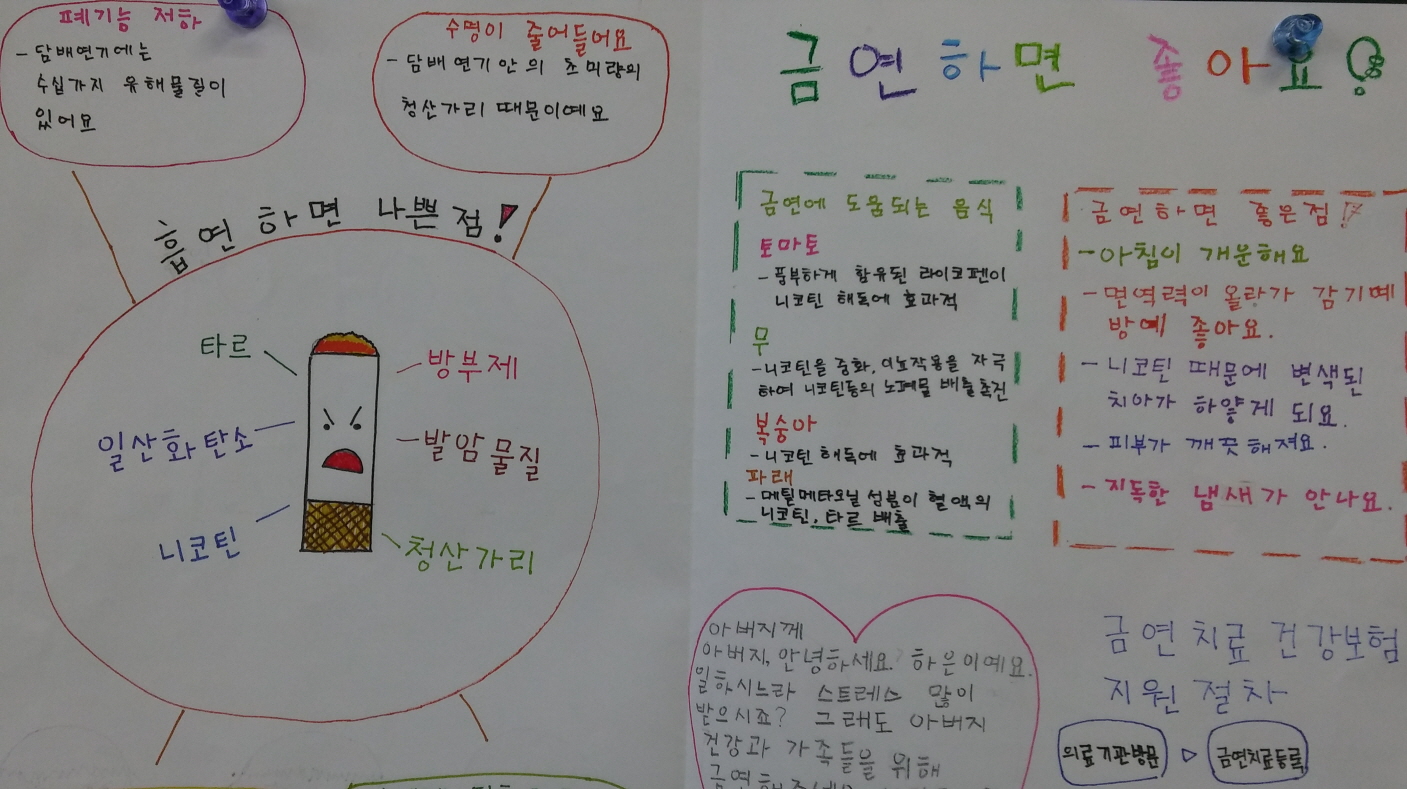 폐기능 저하
- 담배연기에는
수십가지 유해물질이
있어요
수명이 줄어들어요
- 담배 연기 안의 초미량의
청산가리 때문이예요
흡연하면 나쁜점!
타르
방부제
일산화탄소
발암물질
니코틴
청산가리
금연하면 좋아요
금연에 도움되는 음식
토마토
- 풍부하게 함유된 라이코펜이
니코틴 해독에 효과적
무
- 니코틴을 중화, 이뇨작용을 자극
하여 니코틴등의 노폐물 배출촉진
복숭아
- 니코틴 해독에 효과적
파래
- 메틸메타오닐 성분이 혈액의
니코틴, 타르 배출
금연하면 좋은점!
- 아침이 개운해요
- 면역력이 올라가 감기예
방에 좋아요.
- 니코틴 때문에 변색된
치아가 하얗게 되요.
- 피부가 깨끗해져요.
- 지독한 냄새가 안나요.
아버지께
아버지, 안녕하세요 하은이예요.
일하시느라 스트레스 많이
받으시죠? 그래도 아버지
건강과 가족들을 위해
금연치료 건강보험
지원 절차
의료기관방문 ▷ 금연치료등록